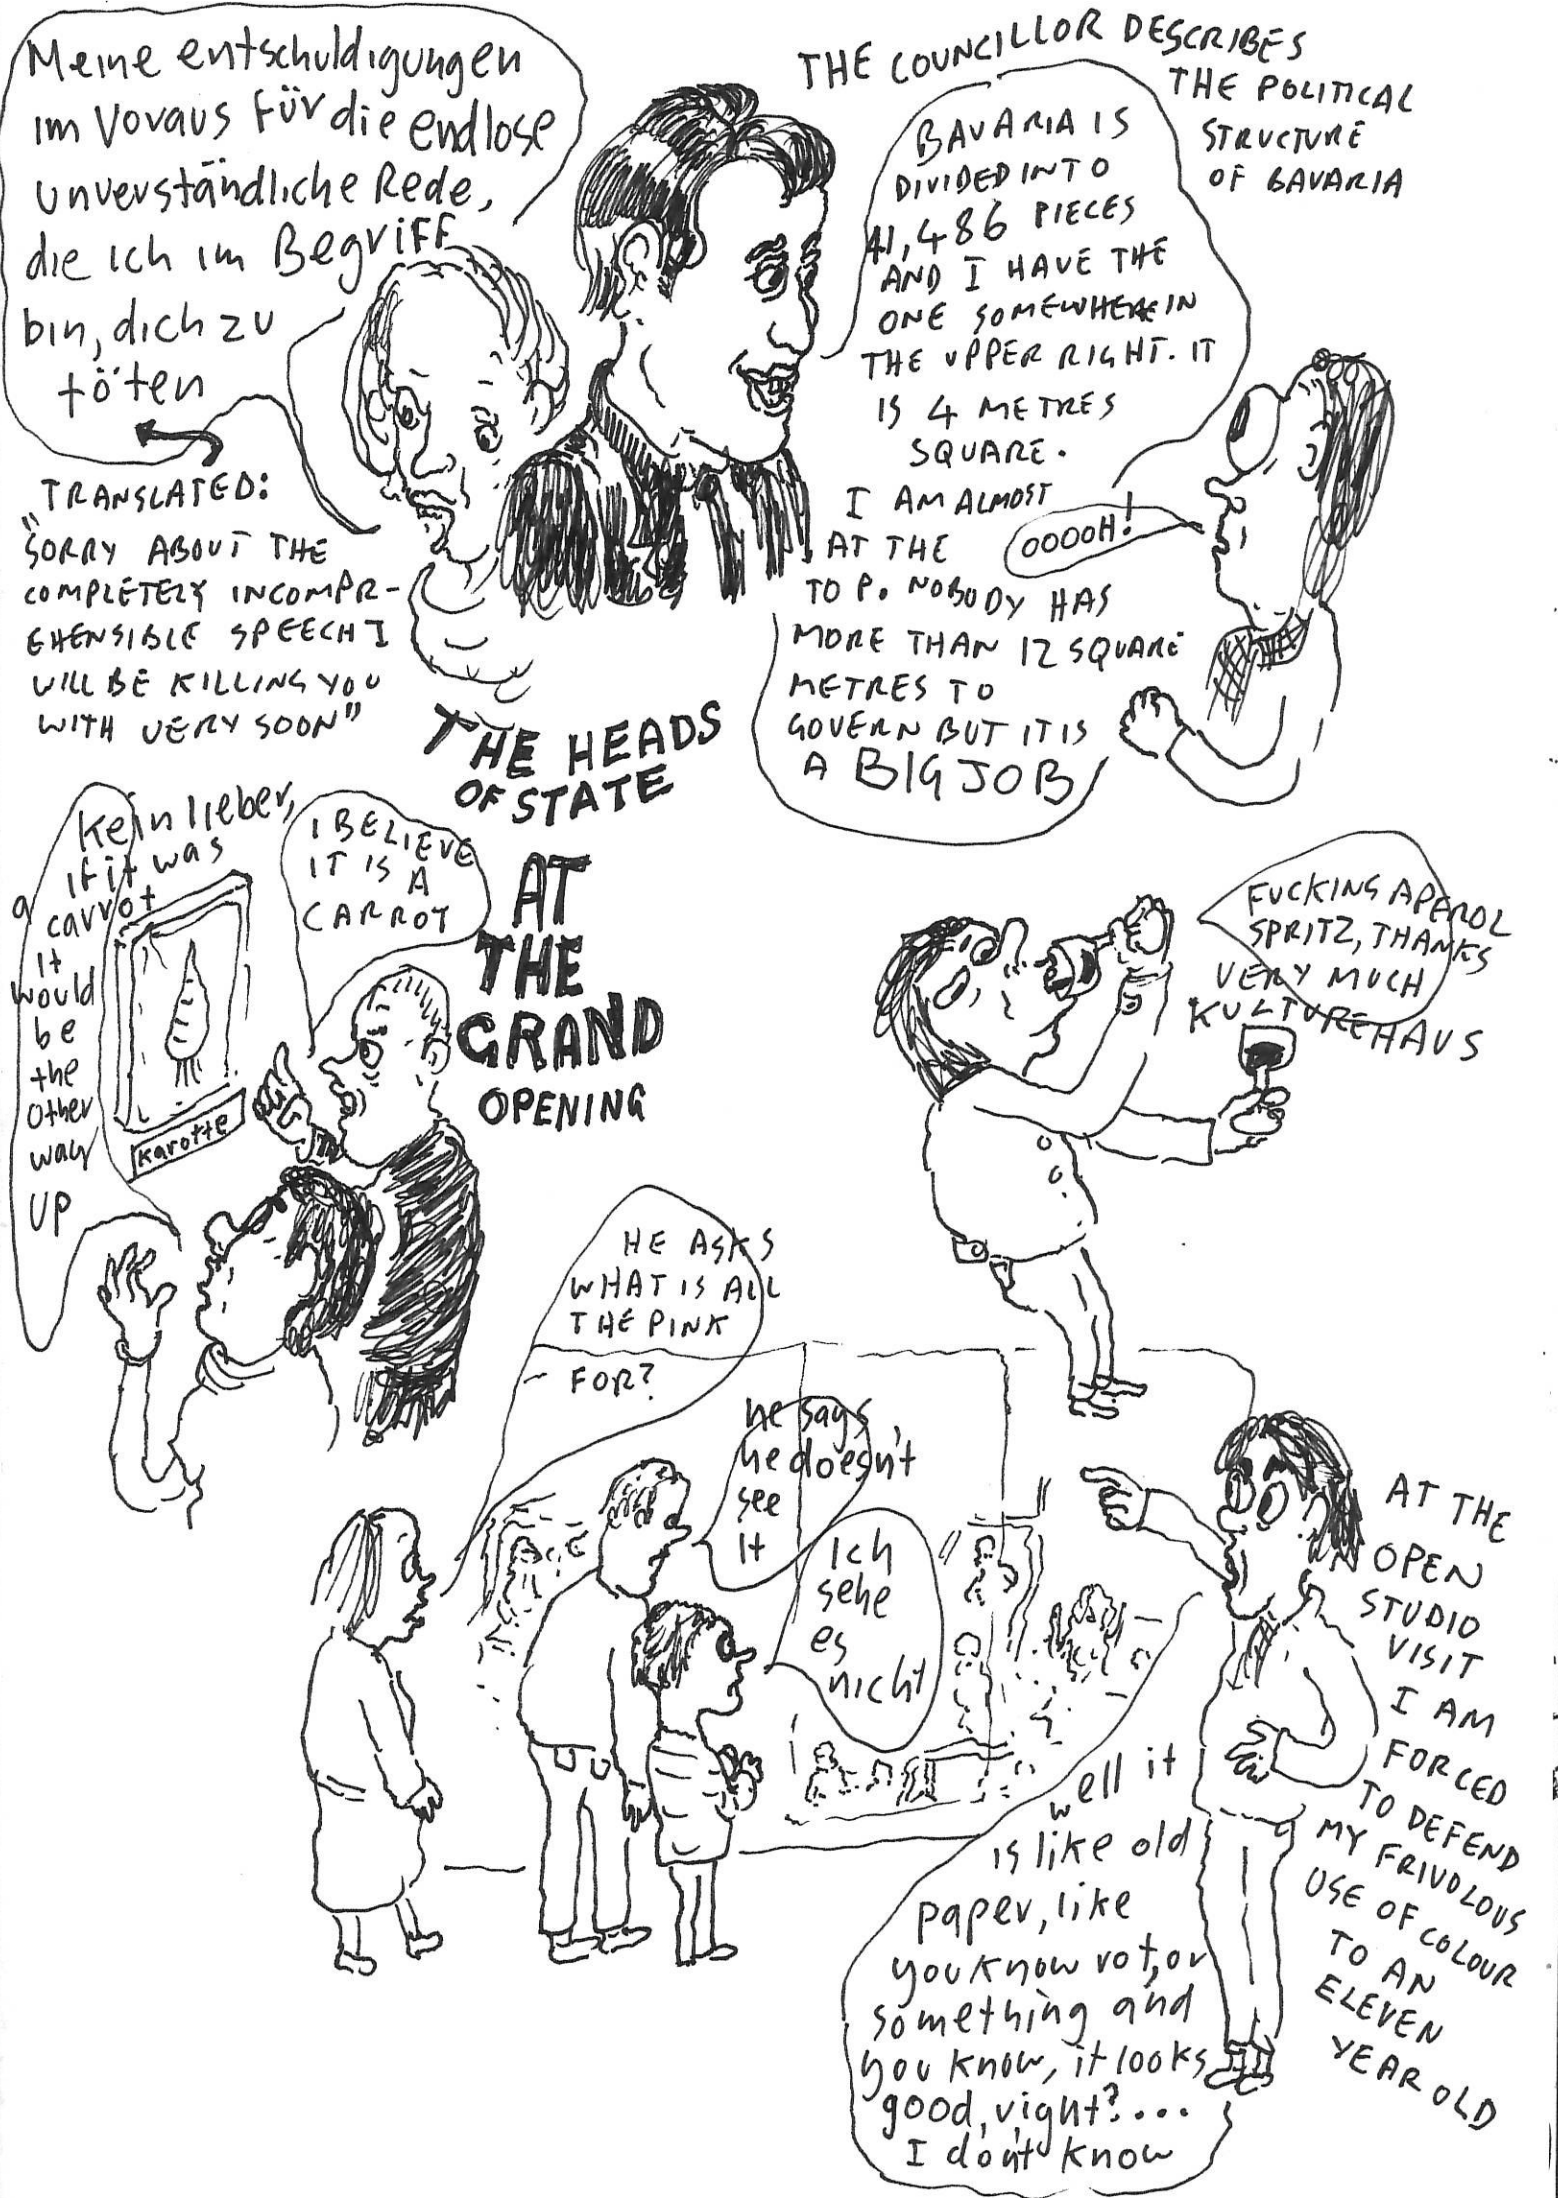 Meine entschuldigungen
im Voraus für die endlose
unverständliche Rede,
die ich im Begriff
bin, dich zu
töten
TRANSLATED:
"SORRY ABOUT THE
COMPLETELY INCOMPR-
EHENSIBLE SPEECH I
WILL BE KILLING YOU
WITH VERY SOON"
THE HEADS
OF STATE
THE COUNCILLOR DESCRIBES
THE POLITICAL
STRUCTURE
OF BAVARIA
BAVARIA IS
DIVIDED INTO
41,486 PIECES
AND I HAVE THE
ONE SOMEWHERE IN
THE UPPER RIGHT. IT
IS 4 METRES
SQUARE.
I AM ALMOST
AT THE
TOP. NOBODY HAS
MORE THAN 12 SQUARE
METRES TO
GOVERN BUT IT IS
A BIG JOB
OOOOH!
AT
THE
GRAND
OPENING
I BELIEVE
IT IS A
CARROT
Kein lieber,
if it was
a carrot
it
would
be
the
other
way
up
Karotte
FUCKING APEROL
SPRITZ, THANKS
VERY MUCH
KULTUREHAUS
HE ASKS
WHAT IS ALL
THE PINK
FOR?
he says
he doesn't
see
it
Ich
sehe
es
nicht
AT THE
OPEN
STUDIO
VISIT
I AM
FORCED
TO DEFEND
MY FRIVOLOUS
USE OF COLOUR
TO AN
ELEVEN
YEAR OLD
well it
is like old
paper, like
you know rot, or
something and
you know, it looks
good, right?...
I don't know